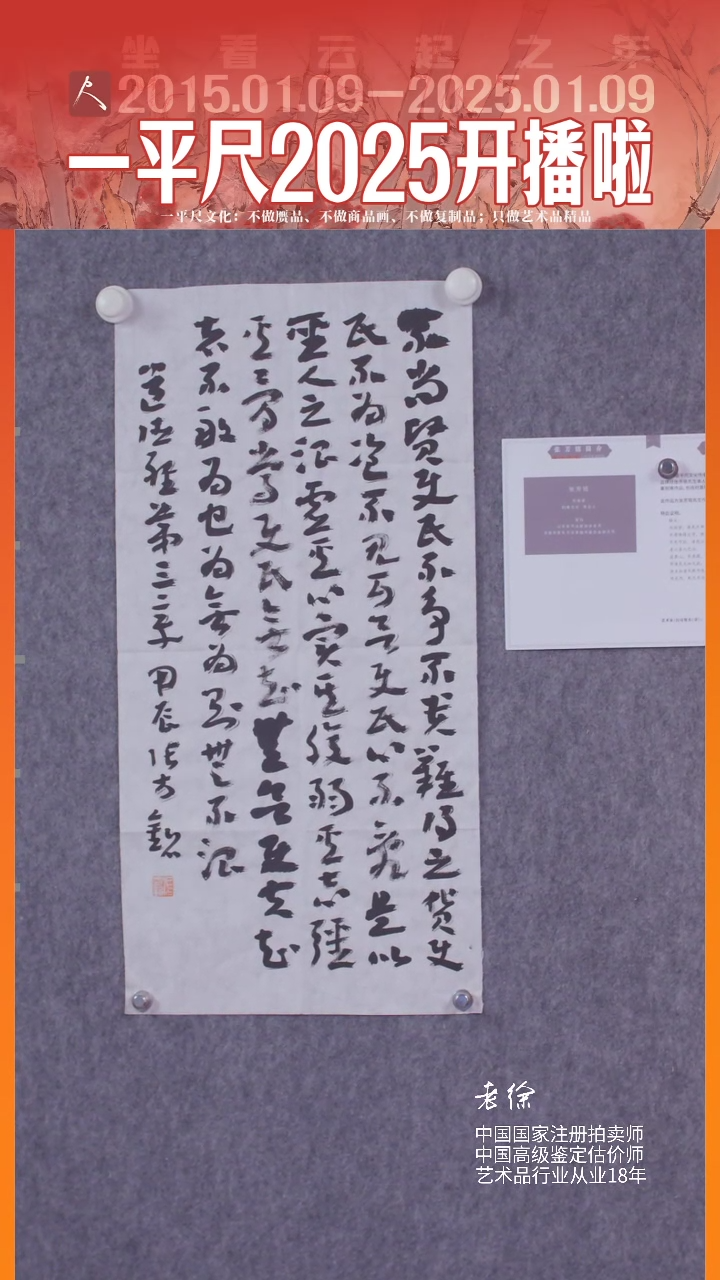 坐看云起之年
2015.01.09—2025.01.09
一平尺2025开播啦
一平尺文化：不做赝品、不做商品画、不做复制品；只做艺术品精品
不尚賢使民不爭不貴難得之貨使
民不為盜不見可欲使民心不亂是以
聖人之治虛其心實其腹弱其志強
其骨常使民無知無欲使夫知
者不敢為也為無為則無不治
道德經第三章 甲辰 張方
老徐
中国国家注册拍卖师
中国高级鉴定估价师
艺术品行业从业18年